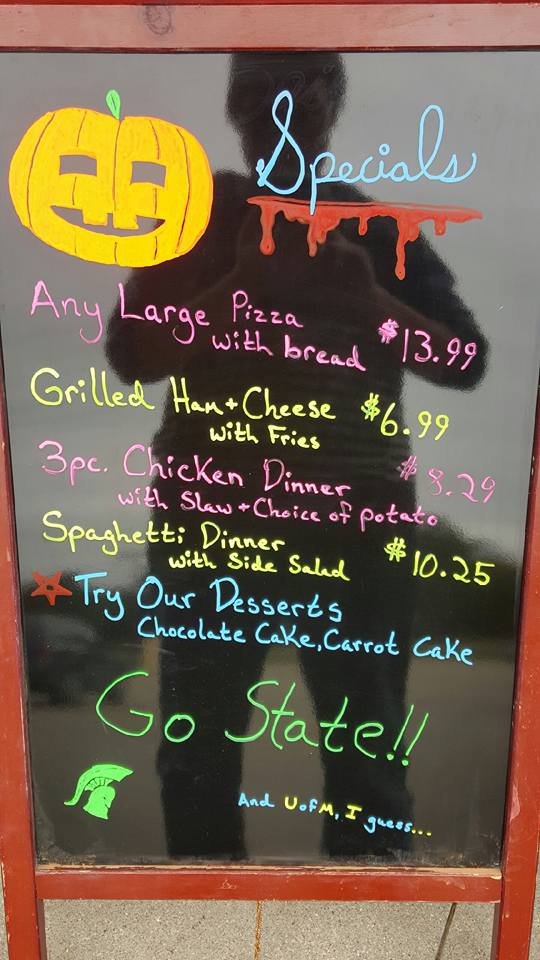 Specials
Any Large Pizza
with bread $13.99
Grilled Ham + Cheese $6.99
with Fries
3pc. Chicken Dinner $8.29
with Slaw + Choice of potato
Spaghetti Dinner $10.25
with Side Salad
Try Our Desserts
Chocolate Cake, Carrot Cake
Go State!!
And U of M, I guess...